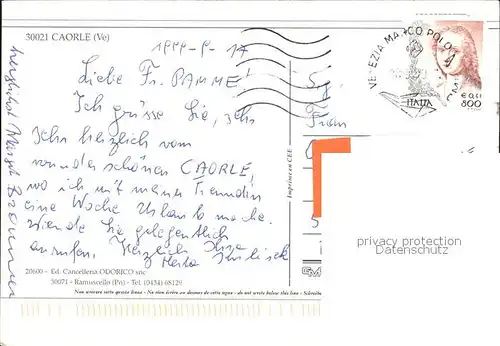 30021 CAORLE (Ve)
1999-9-17
Liebe Fr. PAMME!
Ich grüsse Sie, sehr
herzlich vom
wunderschönen CAORLE,
wo ich mit meiner Freundin
eine Woche Urlaub mache.
Werde Sie gelegentlich
anrufen. Herzlich Ihre
herzlichst Margit
20600 - Ed. Cancelleria ODORICO snc
30071 - Ramuscello (Pn) - Tel. (0434) 68129
Non scrivere sotto questa linea - Ne rien écrire au-dessous de cette ligne - do not wrote below this line - Schreibe
Imprimé en CEE
VENEZIA MARCO POLO
ITALIA
€ 0,41
800
Frau
privacy protection
Datenschutz